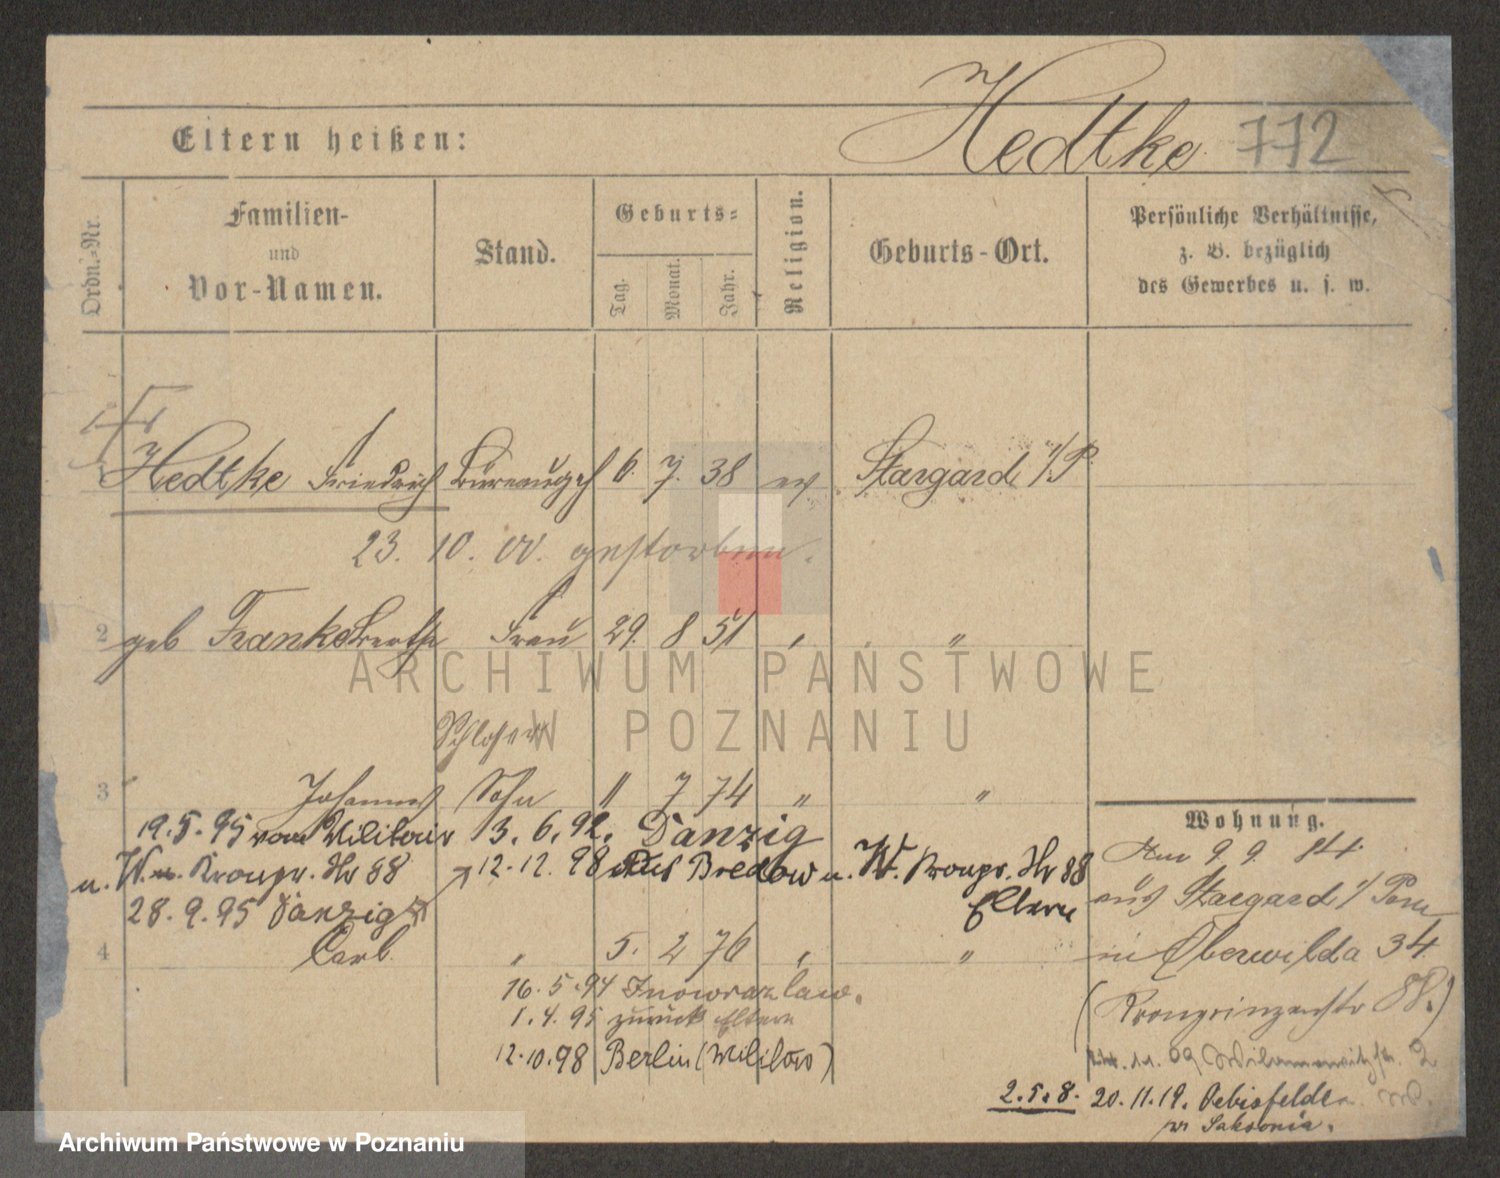 Eltern heißen: Hedtke 772
Ordn.-Nr.
Familien-
und
Vor-Namen.
Stand.
Geburts-
Tag.
Monat.
Jahr.
Religion.
Geburts-Ort.
Persönliche Verhältnisse,
z. B. bezüglich
des Gewerbes u. s. w.
Hedtke Friedrich Büreaugeh 6. 7. 38 ev Stargard i/P.
23. 10. 00. gestorben.
2 geb Franke Bertha Frau 29. 8 51 " "
ARCHIWUM PAŃSTWOWE
W POZNANIU
Schlosser
3 Johannes Sohn " 7 74 " "
19.5.95 vom Militair 3. 6. 92. Danzig
u. W. Kronpr. Str 88 12.12.98 aus Bredow u. W. Kronpr. Str 88
28.9.95 Danzig Eltern
4 Carl " 5. 2 76 " "
16.5.94 Inowrazlaw.
1.4.95 zurück Eltern
12.10.98 Berlin (Militär)
Wohnung.
Am 9. 9. 84.
aus Stargard i/Pom
in Oberwilda 34
(Kronprinzenstr 88.)
11. 99 Wilamowitzstr. 2
2.5.8. 20.11.19. Oebisfelde
w Saksonia.
Archiwum Państwowe w Poznaniu